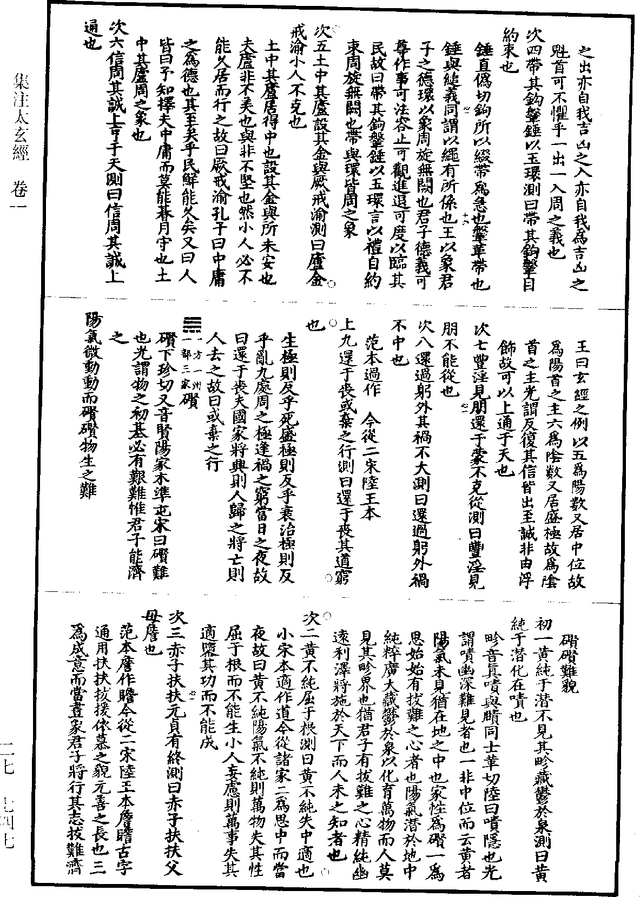 之出亦自我吉凶之入亦自我為吉凶之
魁首可不懼乎一出一入周之義也
次四帶其鈎鞶錘以玉環測曰帶其鈎鞶自
約束也
錘直偽切鈎所以綴帶為急也鞶革帶也
錘與縋義同謂以繩有所係也王以象君
子之德環以象周旋無闕也君子德義可
尊作事可法容止可觀進退可度以臨其
民故曰帶其鈎鞶錘以玉環言以禮自約
束周旋無闕也帶與環皆周之象
次五土中其廬設其金輿厥戒渝測曰廬金
戒渝小人不克也
土中其廬居得中也設其金輿所未安也
夫廬非不美也輿非不堅也然小人必不
能久居而行之故曰厥戒渝孔子曰中庸
之為德也其至矣乎民鮮能久矣又曰人
皆曰予知擇夫中庸而莫能朞月守也土
中其廬周之象也
次六信周其誠上亨于天測曰信周其誠上
通也
王曰玄經之例以五為陽數又居中位故
為陽首之主六為陰數又居盛極故為陰
首之主光謂反復其信皆出至誠非由浮
飾故可以上通于天也
次七豐淫見朋還于蒙不克從測曰豐淫見
朋不能從也
次八還過躬外其禍不大測曰還過躬外禍
不中也
范本過作 今從二宋陸王本
上九還于喪或棄之行測曰還于喪其道窮
也
生極則反乎死盛極則反乎衰治極則反
乎亂九處周之極逢禍之窮當日之夜故
曰還于喪夫國家將興則人歸之將亡則
人去之故曰或棄之行
一方一州一部三家 礥
礥下珍切又音賢陽家木準屯宋曰礥難
也光謂物之初基必有艱難惟君子能濟
之
陽氣微動動而礥礥物生之難
礥礥難貌
初一黃純于潛不見其畛藏鬱於泉測曰黃
純于潛化在嘖也
畛音真嘖與賾同士革切陸曰嘖隱也光
謂嘖幽深難見者也一非中位而云黃者
陽氣未見猶在地之中也家性為礥一為
思始始有拔難之心者也陽氣潛於地中
純粹廣大藏鬱於泉以化育萬物而人莫
見其畛界也猶君子有拔難之心精純幽
遠利澤將施於天下而人未之知者也
次二黃不純屈于根測曰黃不純失中適也
小宋本適作道今從諸家二為思中而當
夜故曰黃不純陽氣不純則萬物失其性
屈于根而不能生小人妄慮則萬事失其
適隳其功而不能成
次三赤子扶扶元貞有終測曰赤子扶扶父
母詹也
范本詹作瞻今從二宋陸王本詹瞻古字
通用扶扶扳援依慕之貌元善之長也三
為成意而當晝象君子將行其志拔難濟
集注太玄經 卷一